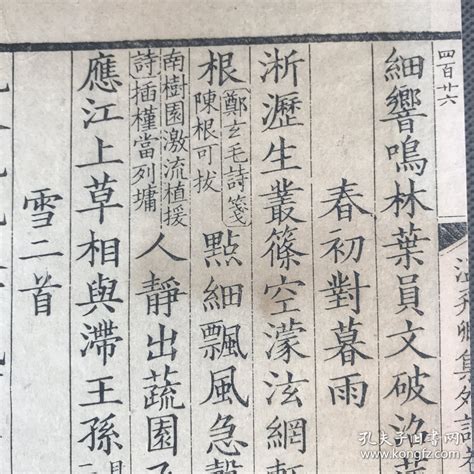 四百廿六
細響鳴林葉員文破沼
春初對暮雨
淅瀝生叢篠空濛泫網軒
根
鄭玄毛詩箋
陳根可拔
點細飄風急聲
南樹園激流植援
詩插槿當列墉
人靜出蔬園
應江上草相與滯王孫
雪二首
孔夫子旧书网
www.kongfz.com